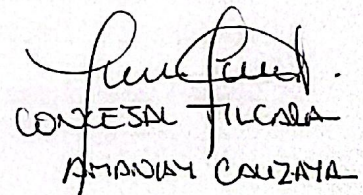 CONCEJAL TILCARA
AMANCAY CALIZAYA